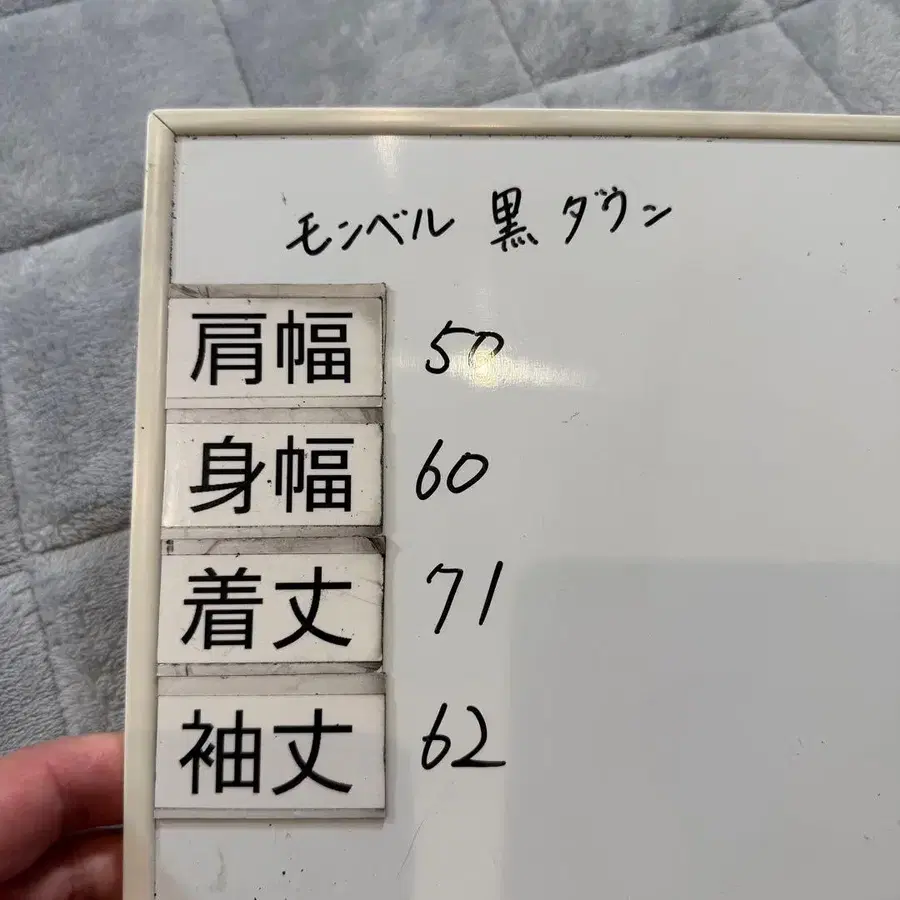 モンベル 黒 ダウン
肩幅 50
身幅 60
着丈 71
袖丈 62